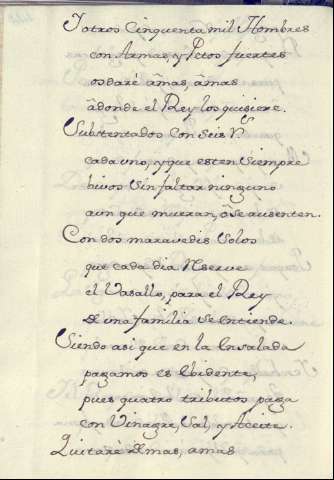 Y otros Cinquenta mil Hombres
con Armas, y Petos fuertes
os daré âmas, âmas
âdonde el Rey los quisiere.
Substentados Con Seis
cada uno, y que esten Siempre
bivos Sin faltar ninguno
aun que mueran, ô Se ausenten.
Con dos maravedis Solos
que cada dia Reserve
el Vasallo, para el Rey
de una familia Se entiende.
Siendo asi que en la Ensalada
pagamos es Ebidente,
pues quatro tributos paga
con Vinagre, Sal, y Aceite.
Quitaré demas, amas